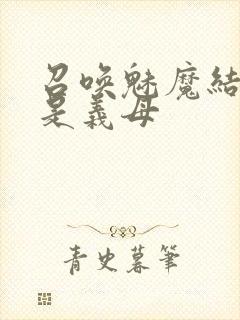 召唤魅魔結
是義母
青史暮筆